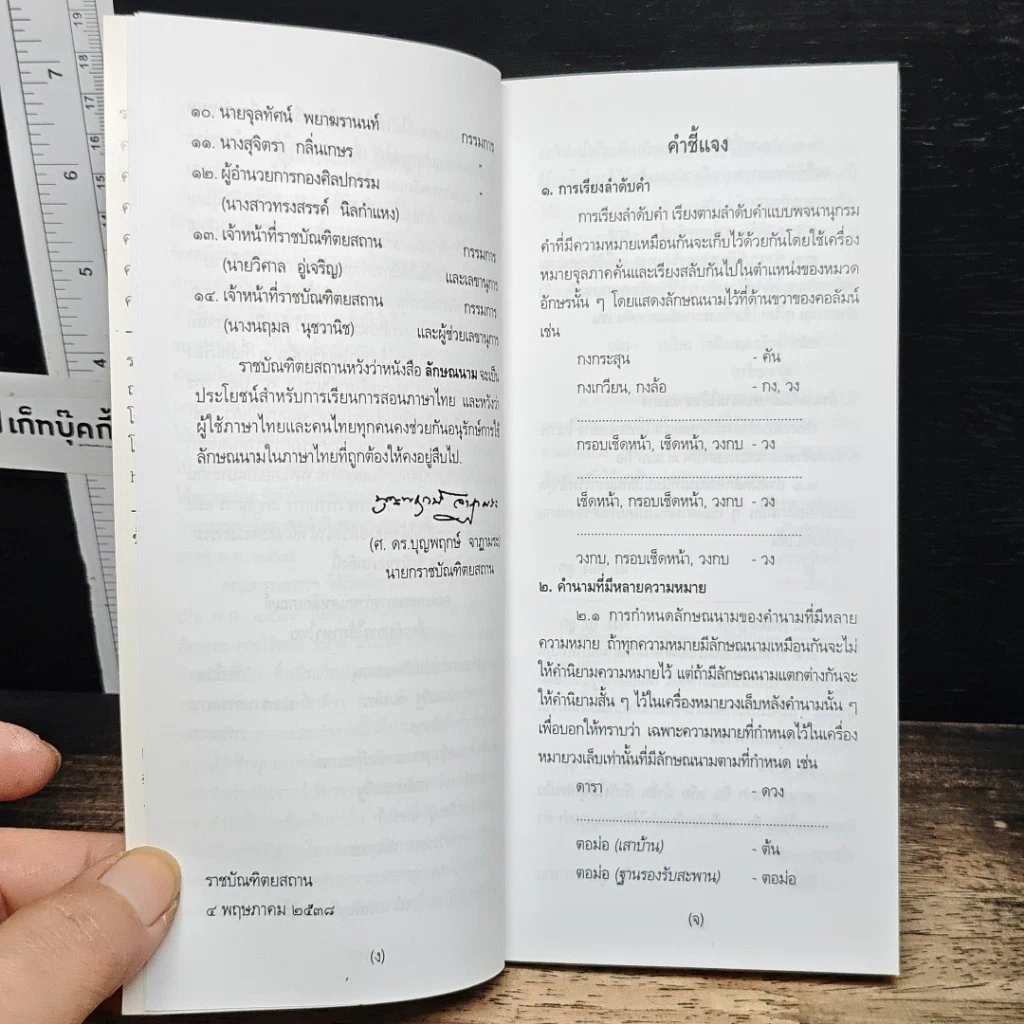 ๑๐. นายจุลทัศน์ พยาฆรานนท์ กรรมการ
๑๑. นางสุจิตรา กลิ่นเกษร "
๑๒. ผู้อำนวยการกองศิลปกรรม "
(นางสาวทรงสรรค์ นิลกำแหง)
๑๓. เจ้าหน้าที่ราชบัณฑิตยสถาน กรรมการ
(นายวิศาล อู่เจริญ) และเลขานุการ
๑๔. เจ้าหน้าที่ราชบัณฑิตยสถาน กรรมการ
(นางนฤมล นุชวานิช) และผู้ช่วยเลขานุการ
ราชบัณฑิตยสถานหวังว่าหนังสือ ลักษณนาม จะเป็น
ประโยชน์สำหรับการเรียนการสอนภาษาไทย และหวังว่า
ผู้ใช้ภาษาไทยและคนไทยทุกคนคงช่วยกันอนุรักษ์การใช้
ลักษณนามในภาษาไทยที่ถูกต้องให้คงอยู่สืบไป.
(ศ. ดร.บุญพฤกษ์ จาฏามระ)
นายกราชบัณฑิตยสถาน
ราชบัณฑิตยสถาน
๔ พฤษภาคม ๒๕๓๘
(ง)
คำชี้แจง
๑. การเรียงลำดับคำ
การเรียงลำดับคำ เรียงตามลำดับคำแบบพจนานุกรม
คำที่มีความหมายเหมือนกันจะเก็บไว้ด้วยกันโดยใช้เครื่อง
หมายจุลภาคคั่นและเรียงสลับกันไปในตำแหน่งของหมวด
อักษรนั้น ๆ โดยแสดงลักษณนามไว้ที่ด้านขวาของคอลัมน์
เช่น
กงกระสุน - คัน
กงเกวียน, กงล้อ - กง, วง
................................................
กรอบเช็ดหน้า, เช็ดหน้า, วงกบ - วง
................................................
เช็ดหน้า, กรอบเช็ดหน้า, วงกบ - วง
................................................
วงกบ, กรอบเช็ดหน้า, วงกบ - วง
๒. คำนามที่มีหลายความหมาย
๒.๑ การกำหนดลักษณนามของคำนามที่มีหลาย
ความหมาย ถ้าทุกความหมายมีลักษณนามเหมือนกันจะไม่
ให้คำนิยามความหมายไว้ แต่ถ้ามีลักษณนามแตกต่างกันจะ
ให้คำนิยามสั้น ๆ ไว้ในเครื่องหมายวงเล็บหลังคำนามนั้น ๆ
เพื่อบอกให้ทราบว่า เฉพาะความหมายที่กำหนดไว้ในเครื่อง
หมายวงเล็บเท่านั้นที่มีลักษณนามตามที่กำหนด เช่น
ดารา - ดวง
................................................
ตอม่อ (เสาบ้าน) - ต้น
ตอม่อ (ฐานรองรับสะพาน) - ตอม่อ
(จ)
เก็ทบุ๊คกี้
19
18
17
16
15
7
6
5
4